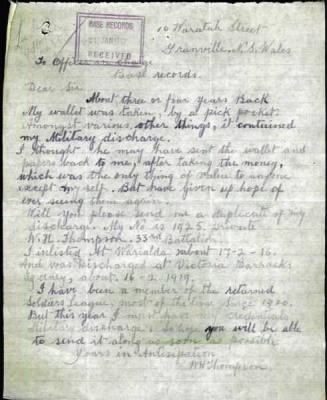 10 Waratah Street
Granville. N.S. Wales
BASE RECORDS
RECEIVED
To Officer in Charge
Base records.
Dear Sir
About three or four years Back
My wallet was taken, by a pick pocket.
Amongst various other things, it contained
my Military discharge.
I thought he may have sent the wallet and
papers back to me, after taking the money,
which was the only thing of value to anyone
except my self. But have given up hope of
ever seeing them again.
Will you please send me a duplicate of my
discharge. My No is 1925. private
W. H. Thompson. 33rd Battalion
I inlisted At Warialda about 17-2-16.
And was discharged at Victoria Barracks
Sydney, about 16-2-1919.
I have been a member of the returned
Soldiers league, most of the time since 1920.
But this year I must have my credentials
Military discharge. So hope you will be able
to send it along as soon as possible
Yours in Anticipation
W H Thompson